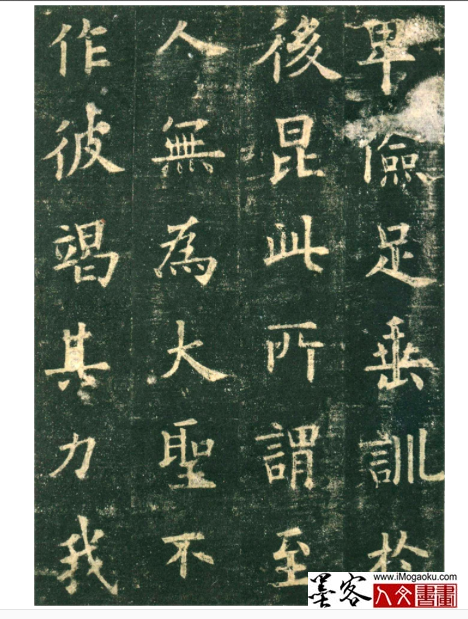 卑儉足垂訓於
後昆此所謂至
人無為大聖不
作彼竭其力我
www.iMogaoku.com
墨客
人文書畫